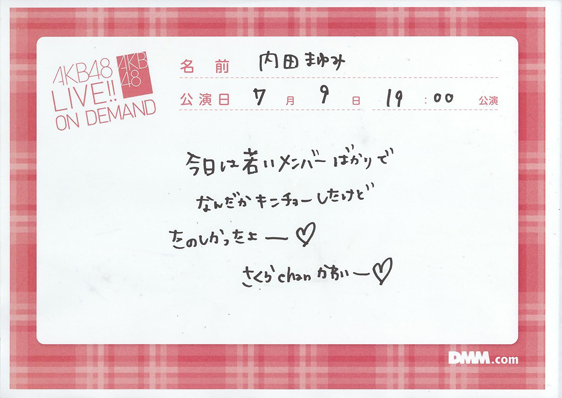 AKB48
LIVE!!
ON DEMAND
AKB
48
名前 内田まゆみ
公演日 7月9日 19:00 公演
今日は若いメンバーばかりで
なんだかキンチョーしたけど
たのしかったよー♡
さくらchanかわいー♡
DMM.com